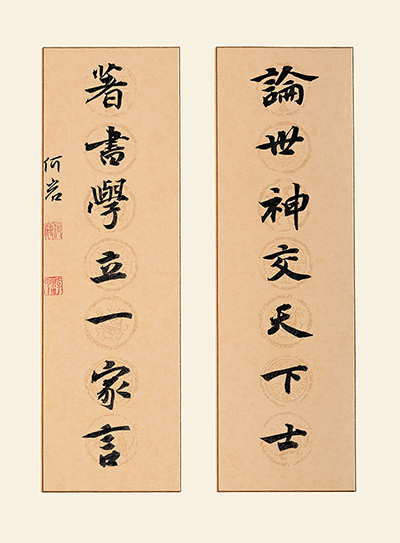 論世神交天下士
著書學立一家言
何岩